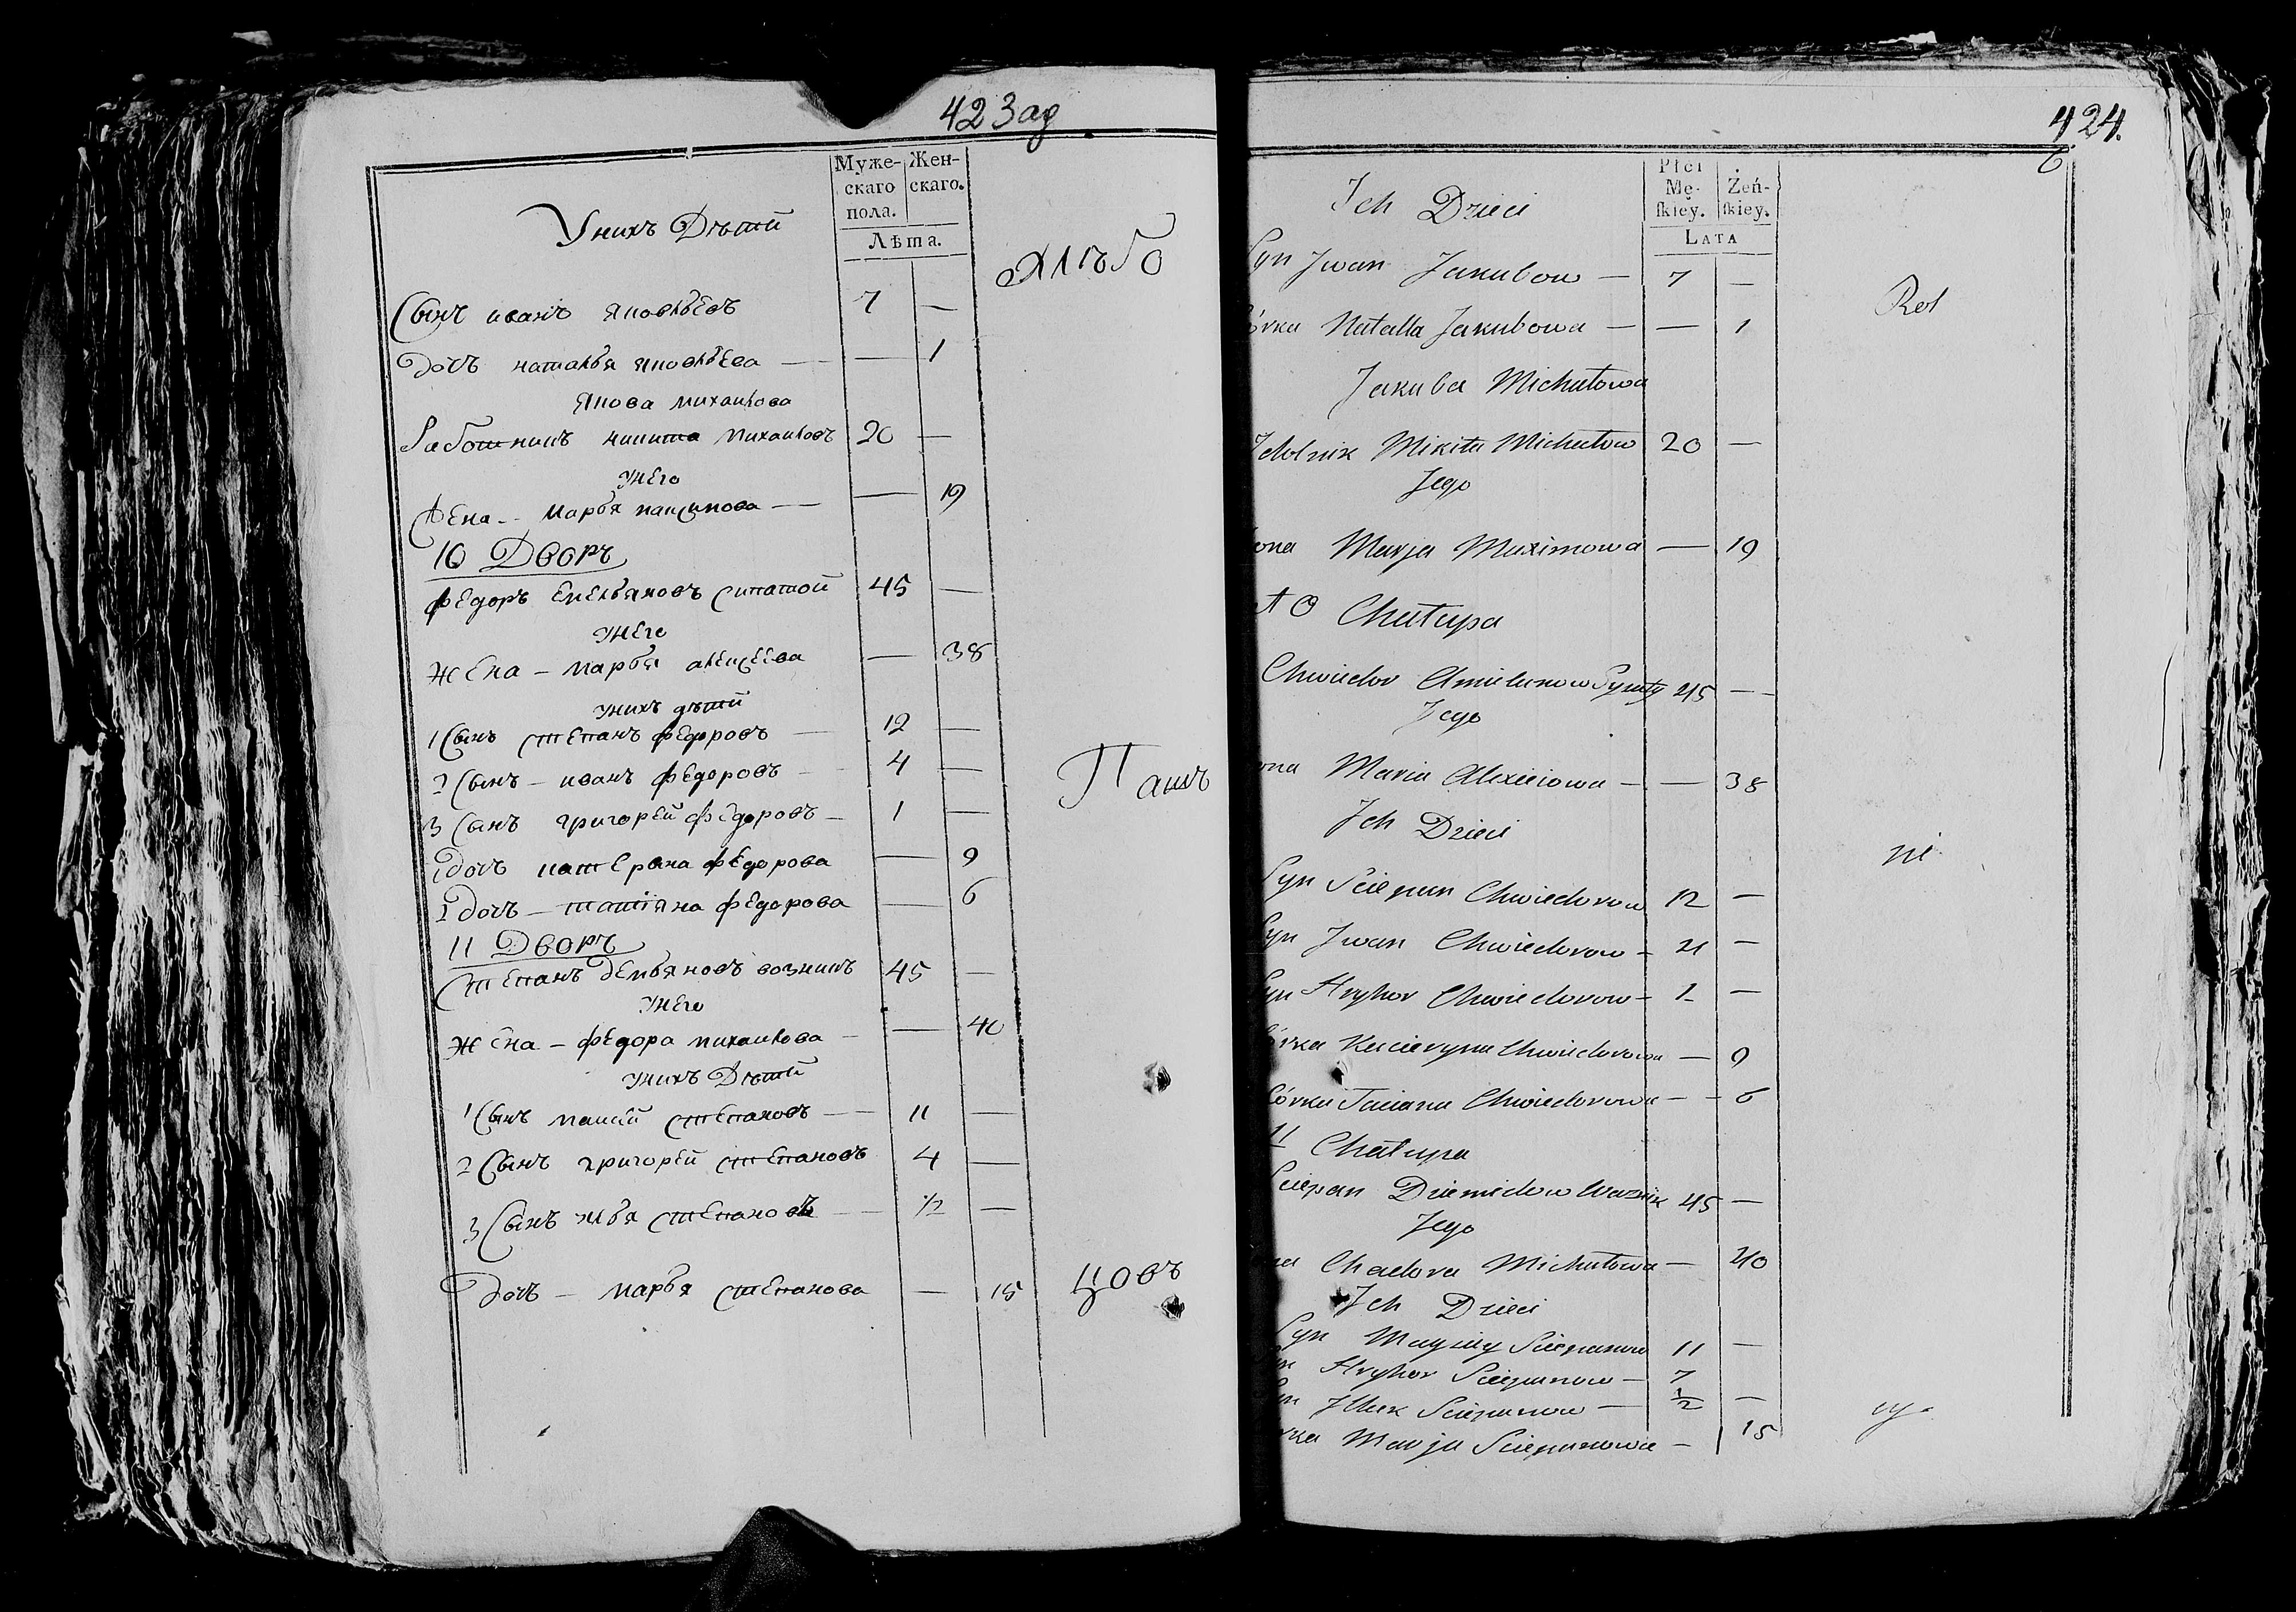 423 ад
Муже- Жен-
скаго скаго.
пола.
Лѣта.
Унихъ Дѣтй
хлѣбо
Сынъ иванъ яковлевъ 7 —
Дочъ наталья яковлева — — 1
якова михаилова
Работникъ никита михаиловъ 20 —
унего
Жена - марья максимова — — 19
10 Дворъ
федоръ емельяновъ сипатой 45 —
унего
жена - марья алексеева — 38
унихъ дѣтй
1 Сынъ степанъ федоровъ — 12 —
2 Сынъ - иванъ федоровъ — 4 —
Пашъ
3 Сынъ григорей федоровъ - 1 —
1 дочъ катерина федорова — 9
2 дочъ - татіяна федорова — 6
11 Дворъ
Степанъ демьяновъ возникъ 45 —
унего
жена - федора михаилова - — 40
унихъ Дѣтй
1 Сынъ степановъ — 11 —
2 Сынъ григорей степановъ 4 —
3 Сынъ илья степановъ — 1/2 —
Дочъ - марья степанова — 15
цовъ
424.
6
Płci
Mę- Żeń-
ſkiey. ſkiey.
LATA
Ich Dzieci
Syn Jwan Jakubow — 7 —
Rol
órka Natalla Jakubowa — — 1
Jakuba Michałowa
Mikita Michałow 20 —
Jego
ona Marja Maximowa — 19
10 Chałupa
Chwiedor Amielanow 45 —
Jego
ona Maria Alexieiowa - — 38
Ich Dzieci
ni
Syn Sciepan Chwiedorow 12 —
Syn Jwan Chwiedorow - 4 —
Syn Hryhor Chwiedorow - 1 —
órka Kacieryna Chwiedorowa — 9
Córka Taciana Chwiedorowa — - 6
11 Chałupa
Sciepan Dziemidow Waznik 45 —
Jego
na Chaedora Michałowa — 40
Ich Dzieci
Syn Sciepanow 11 —
yn Hryhor Sciepanow — 7
yn Sciepanow — 1/2 —
cy.
rka Marja Sciepanowa - 15